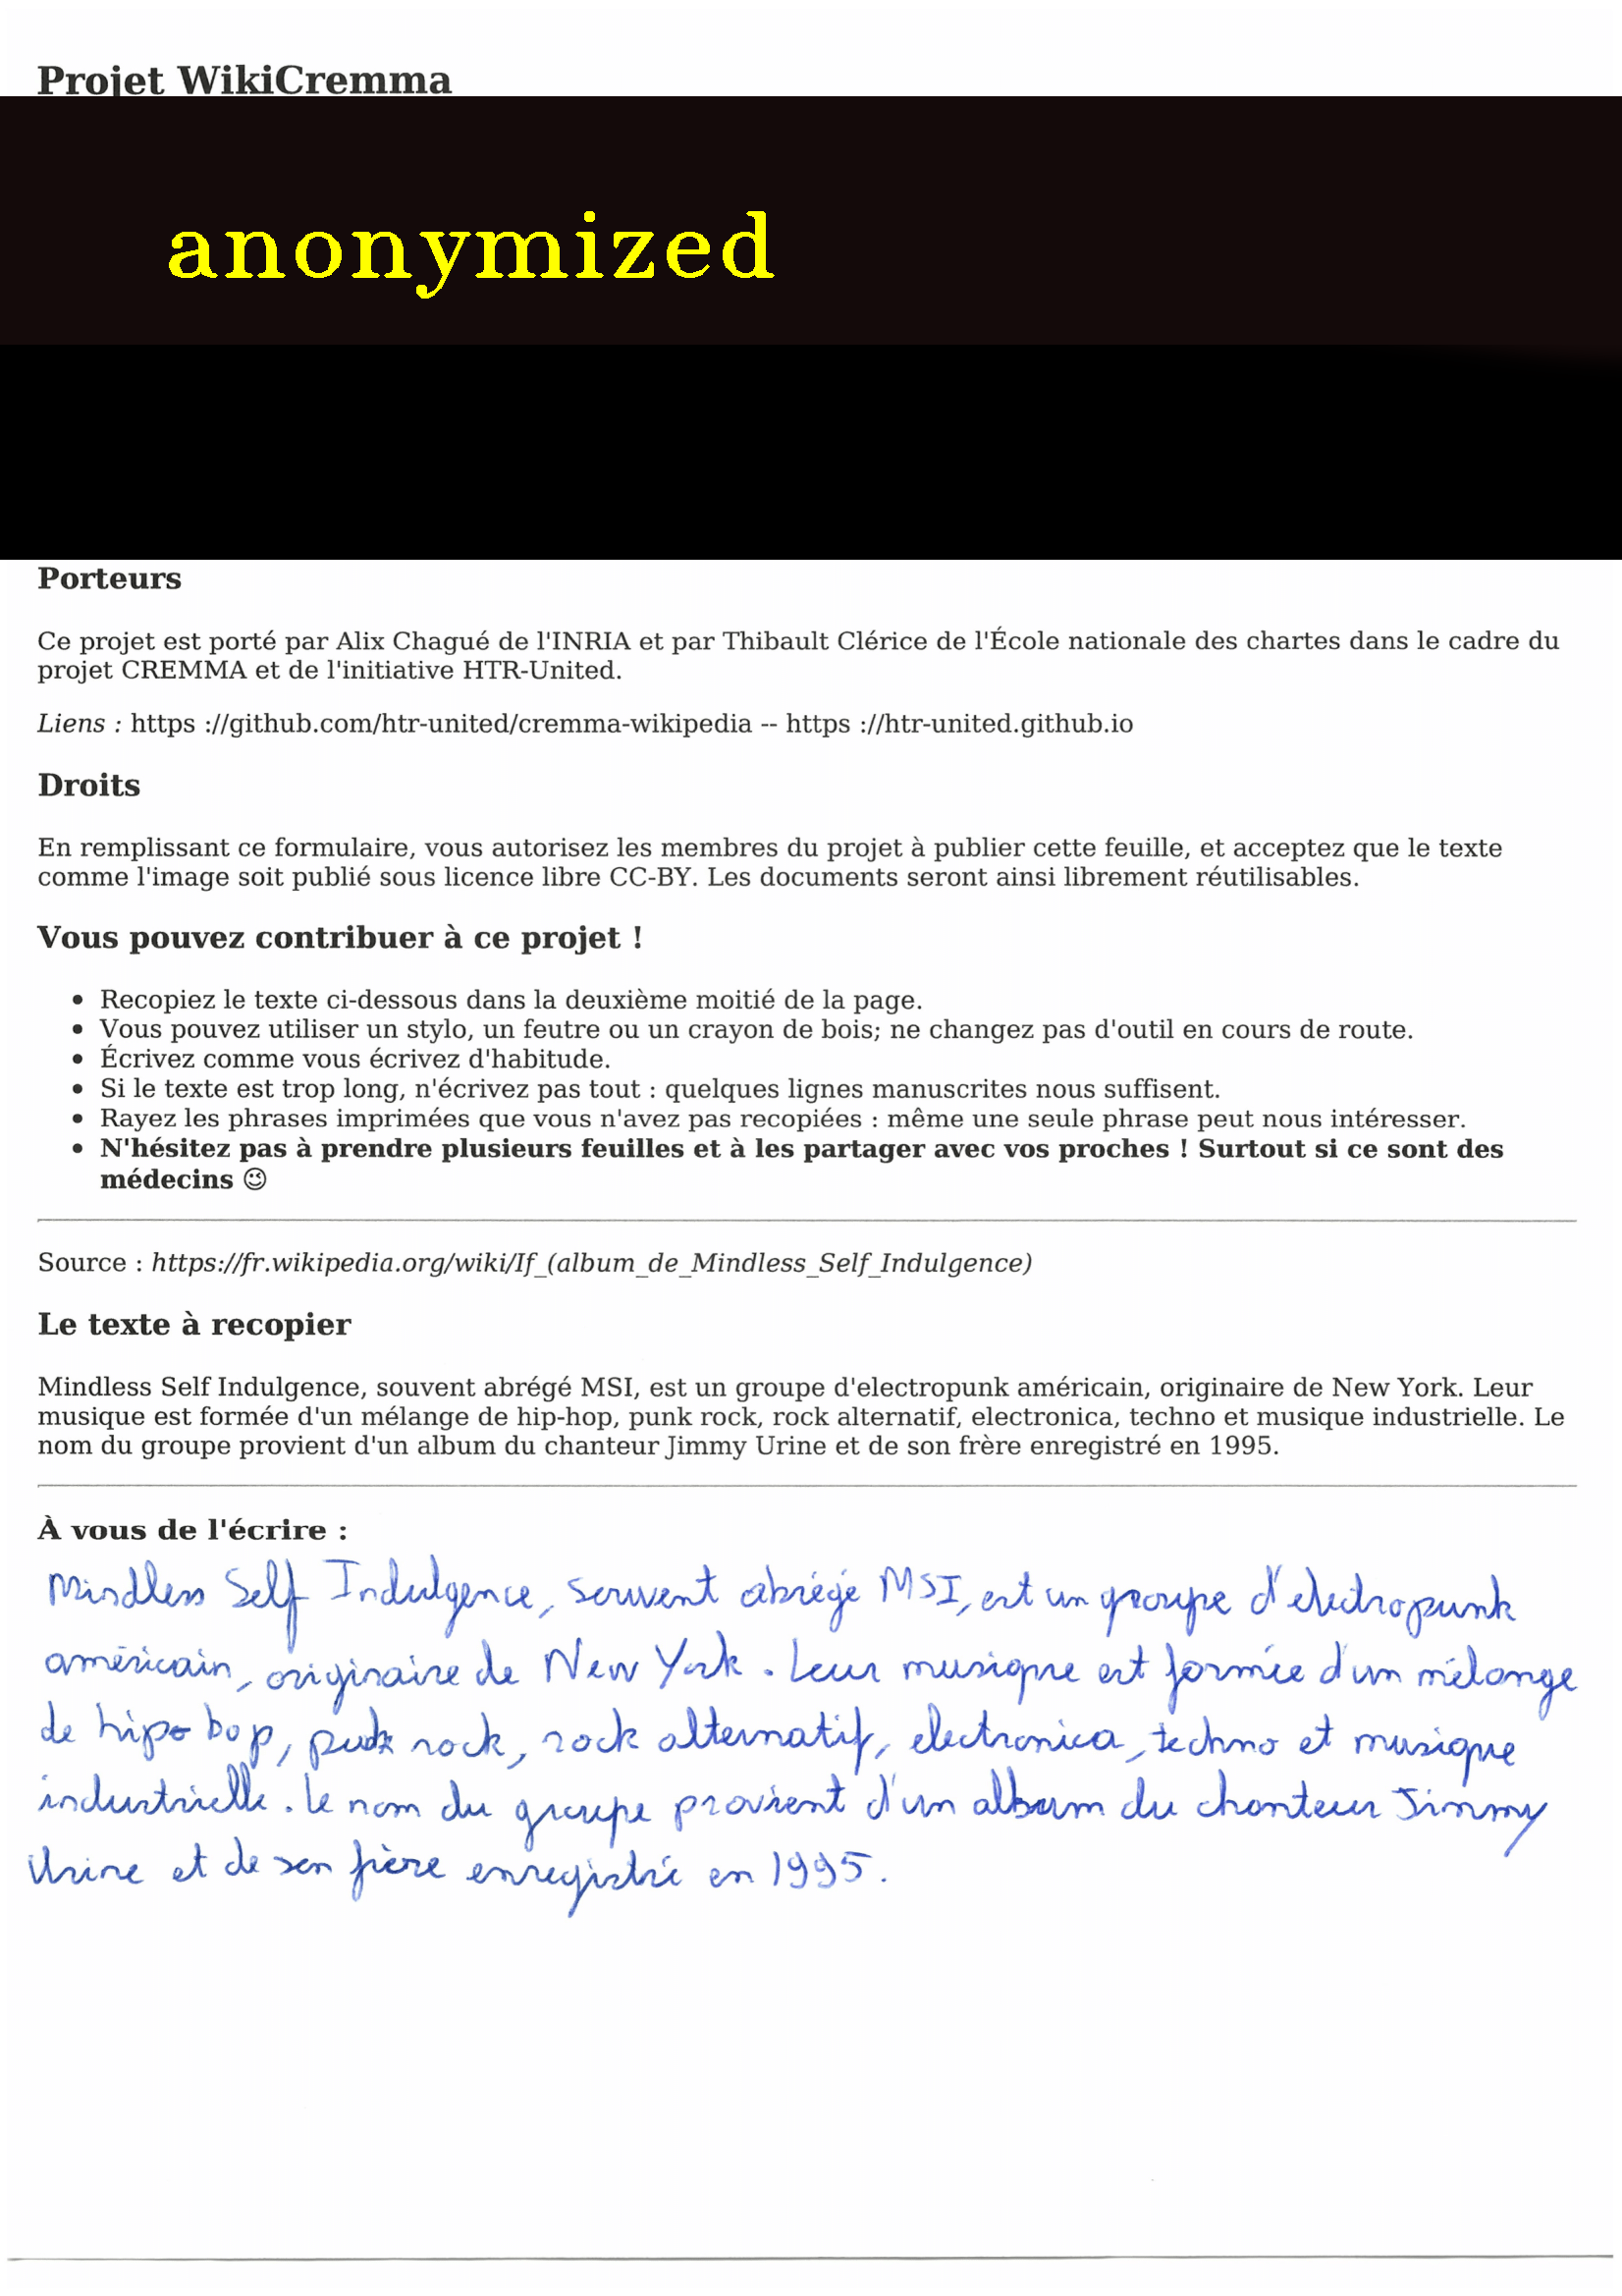 Projet WikiCremma
anonymized
Porteurs
Ce projet est porté par Alix Chagué de l'INRIA et par Thibault Clérice de l'École nationale des chartes dans le cadre du
projet CREMMA et de l'initiative HTR-United.
Liens : https ://github.com/htr-united/cremma-wikipedia -- https ://htr-united.github.io
Droits
En remplissant ce formulaire, vous autorisez les membres du projet à publier cette feuille, et acceptez que le texte
comme l'image soit publié sous licence libre CC-BY. Les documents seront ainsi librement réutilisables.
Vous pouvez contribuer à ce projet !
• Recopiez le texte ci-dessous dans la deuxième moitié de la page.
• Vous pouvez utiliser un stylo, un feutre ou un crayon de bois; ne changez pas d'outil en cours de route.
• Écrivez comme vous écrivez d'habitude.
• Si le texte est trop long, n'écrivez pas tout : quelques lignes manuscrites nous suffisent.
• Rayez les phrases imprimées que vous n'avez pas recopiées : même une seule phrase peut nous intéresser.
• N'hésitez pas à prendre plusieurs feuilles et à les partager avec vos proches ! Surtout si ce sont des
médecins 😉
Source : https://fr.wikipedia.org/wiki/If_(album_de_Mindless_Self_Indulgence)
Le texte à recopier
Mindless Self Indulgence, souvent abrégé MSI, est un groupe d'electropunk américain, originaire de New York. Leur
musique est formée d'un mélange de hip-hop, punk rock, rock alternatif, electronica, techno et musique industrielle. Le
nom du groupe provient d'un album du chanteur Jimmy Urine et de son frère enregistré en 1995.
À vous de l'écrire :
Mindless Self Indulgence, souvent abrégé MSI, est un groupe d'electropunk
américain, originaire de New York. Leur musique est formée d'un mélange
de hip-hop, punk rock, rock alternatif, electronica, techno et musique
industrielle. Le nom du groupe provient d'un album du chanteur Jimmy
Urine et de son frère enregistré en 1995.